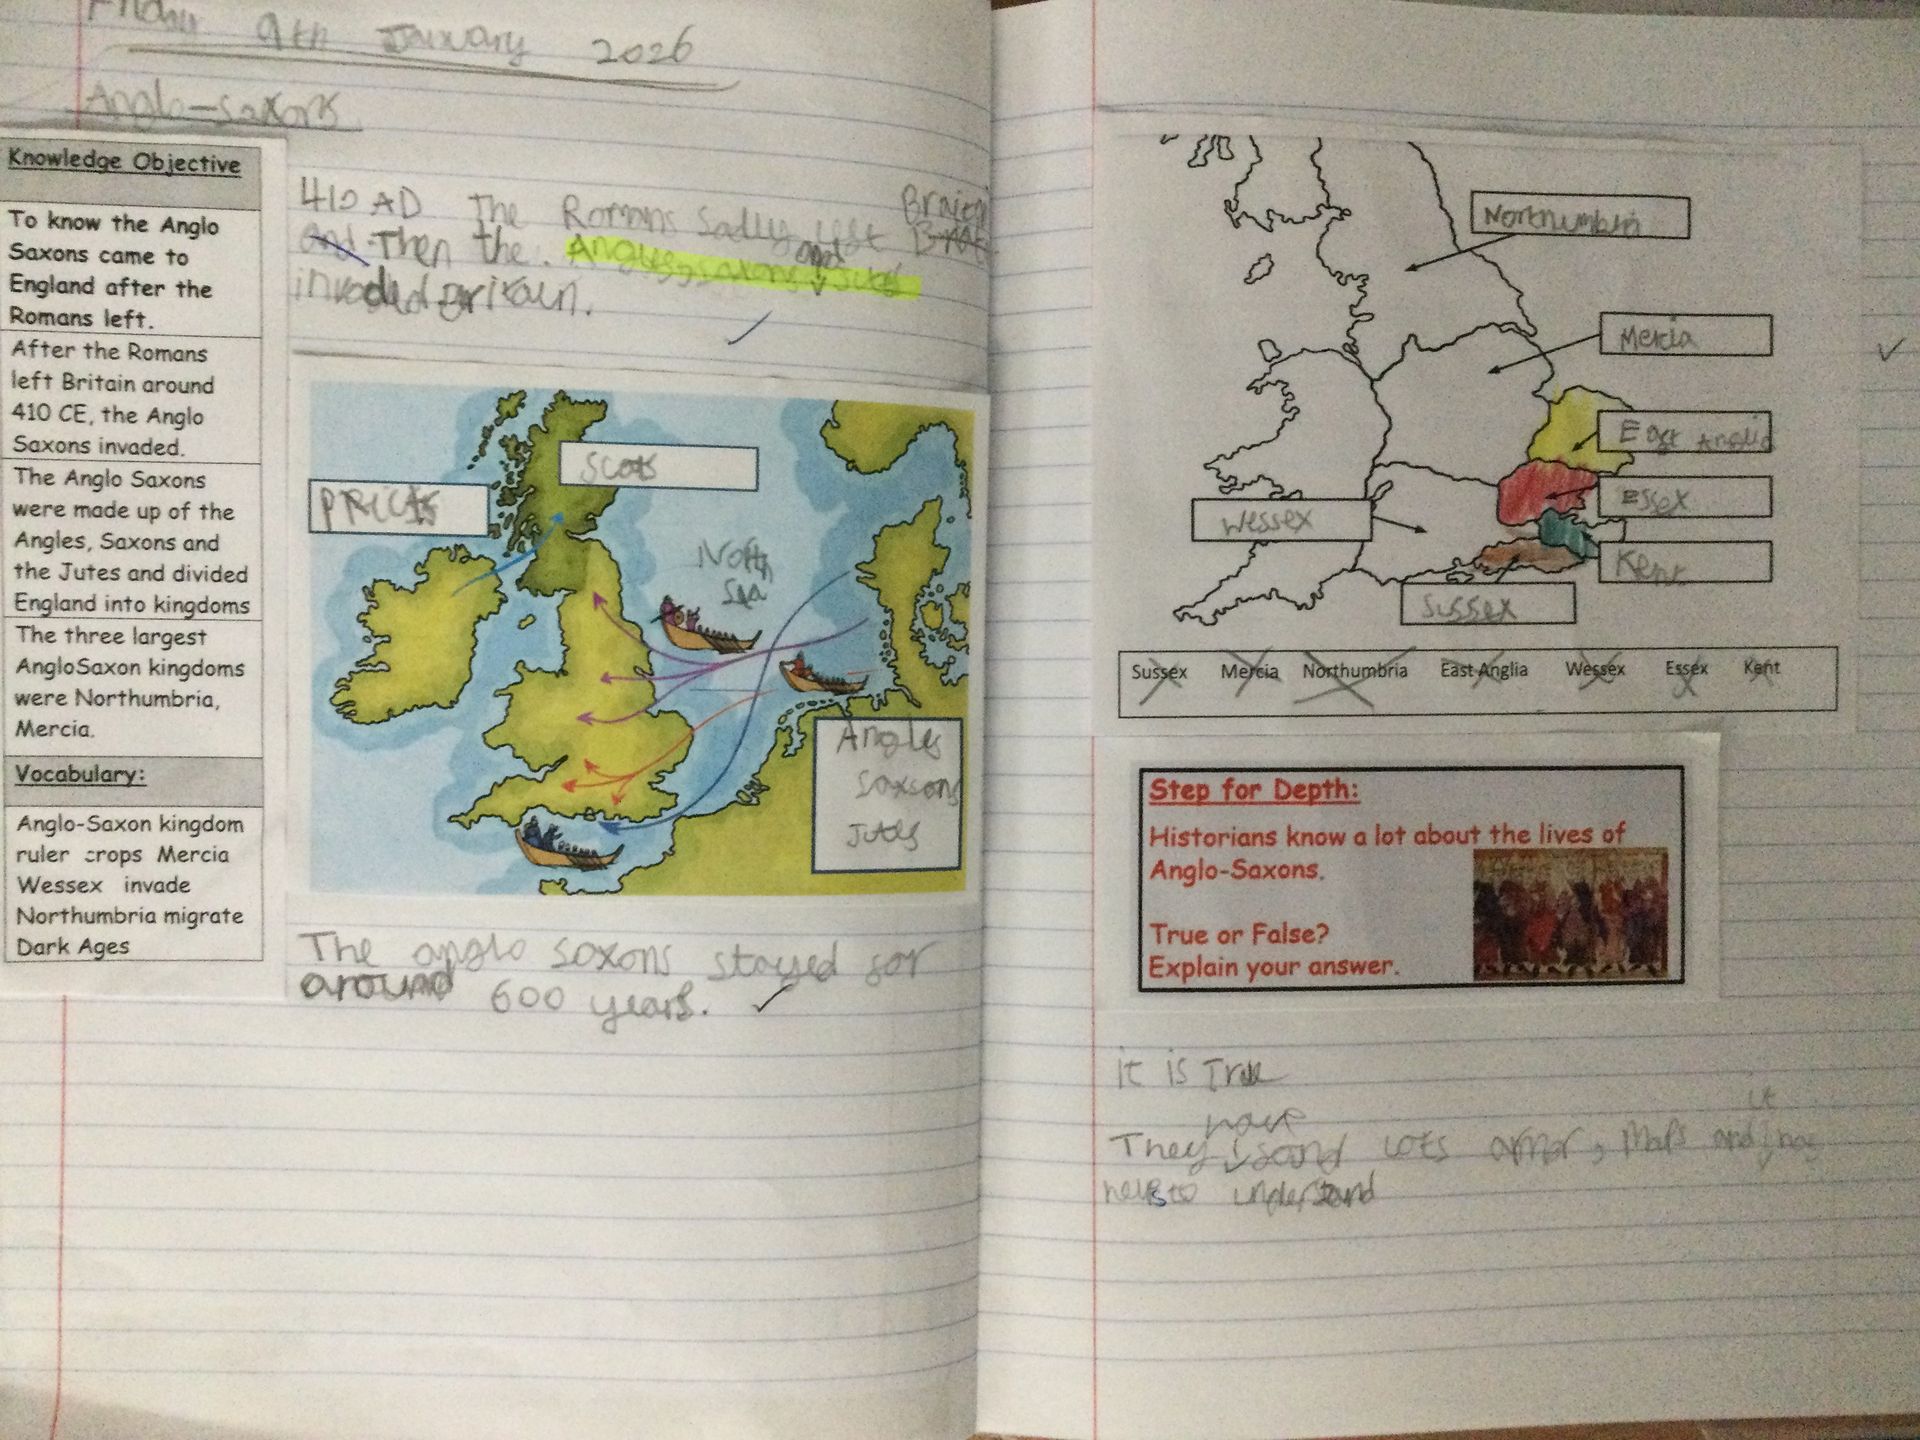 Friday 9th January 2026
Anglo-Saxons
Knowledge Objective
To know the Anglo
Saxons came to
England after the
Romans left.
After the Romans
left Britain around
410 CE, the Anglo
Saxons invaded.
The Anglo Saxons
were made up of the
Angles, Saxons and
the Jutes and divided
England into kingdoms
The three largest
AngloSaxon kingdoms
were Northumbria,
Mercia.
Vocabulary:
Anglo-Saxon kingdom
ruler crops Mercia
Wessex invade
Northumbria migrate
Dark Ages
410 AD The Romans Sadly left
and Then the Angles, saxons and Jutes
invaded Britain.
Scots
North
Sea
Angles
Saxsons
Jutes
The anglo saxons stayed for
around 600 years.
Northumbria
Mercia
East Anglia
Essex
Wessex
Kent
Sussex
Sussex Mercia Northumbria East Anglia Wessex Essex Kent
Step for Depth:
Historians know a lot about the lives of
Anglo-Saxons.
True or False?
Explain your answer.
it is True
They have found lots armor, Maps and it has
helps to understand